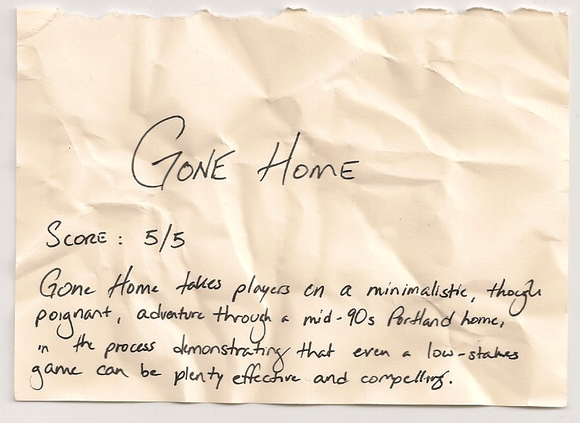 GONE HOME
SCORE: 5/5
Gone Home takes players on a minimalistic, though
poignant, adventure through a mid-90s Portland home,
in the process demonstrating that even a low-stakes
game can be plenty effective and compelling.